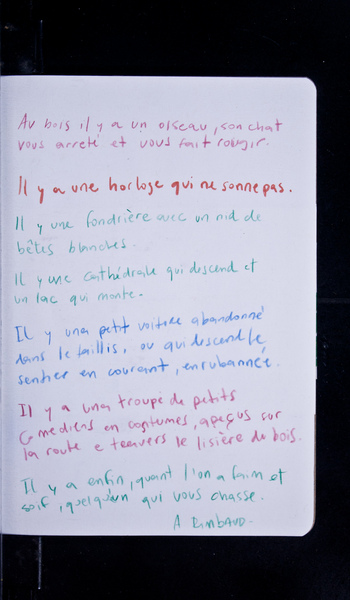 Au bois il y a un oiseau, son chat
vous arreté et vous fait rougir.
Il y a une horloge qui ne sonne pas.
Il y une fondrière avec un nid de
bêtes blanches.
Il y une cathédrale qui descend et
un lac qui monte.
Il y una petit voiture abandonné
dans le taillis, ou qui descend le
sentier en courant, enrubanné.
Il y a una troupe de petits
comédiens en costumes, aperçus sur
la route e teavers le lisière du bois.
Il y a enfin, quant l'on a faim et
soif, quelqu'un qui vous chasse.
A RIMBAUD.